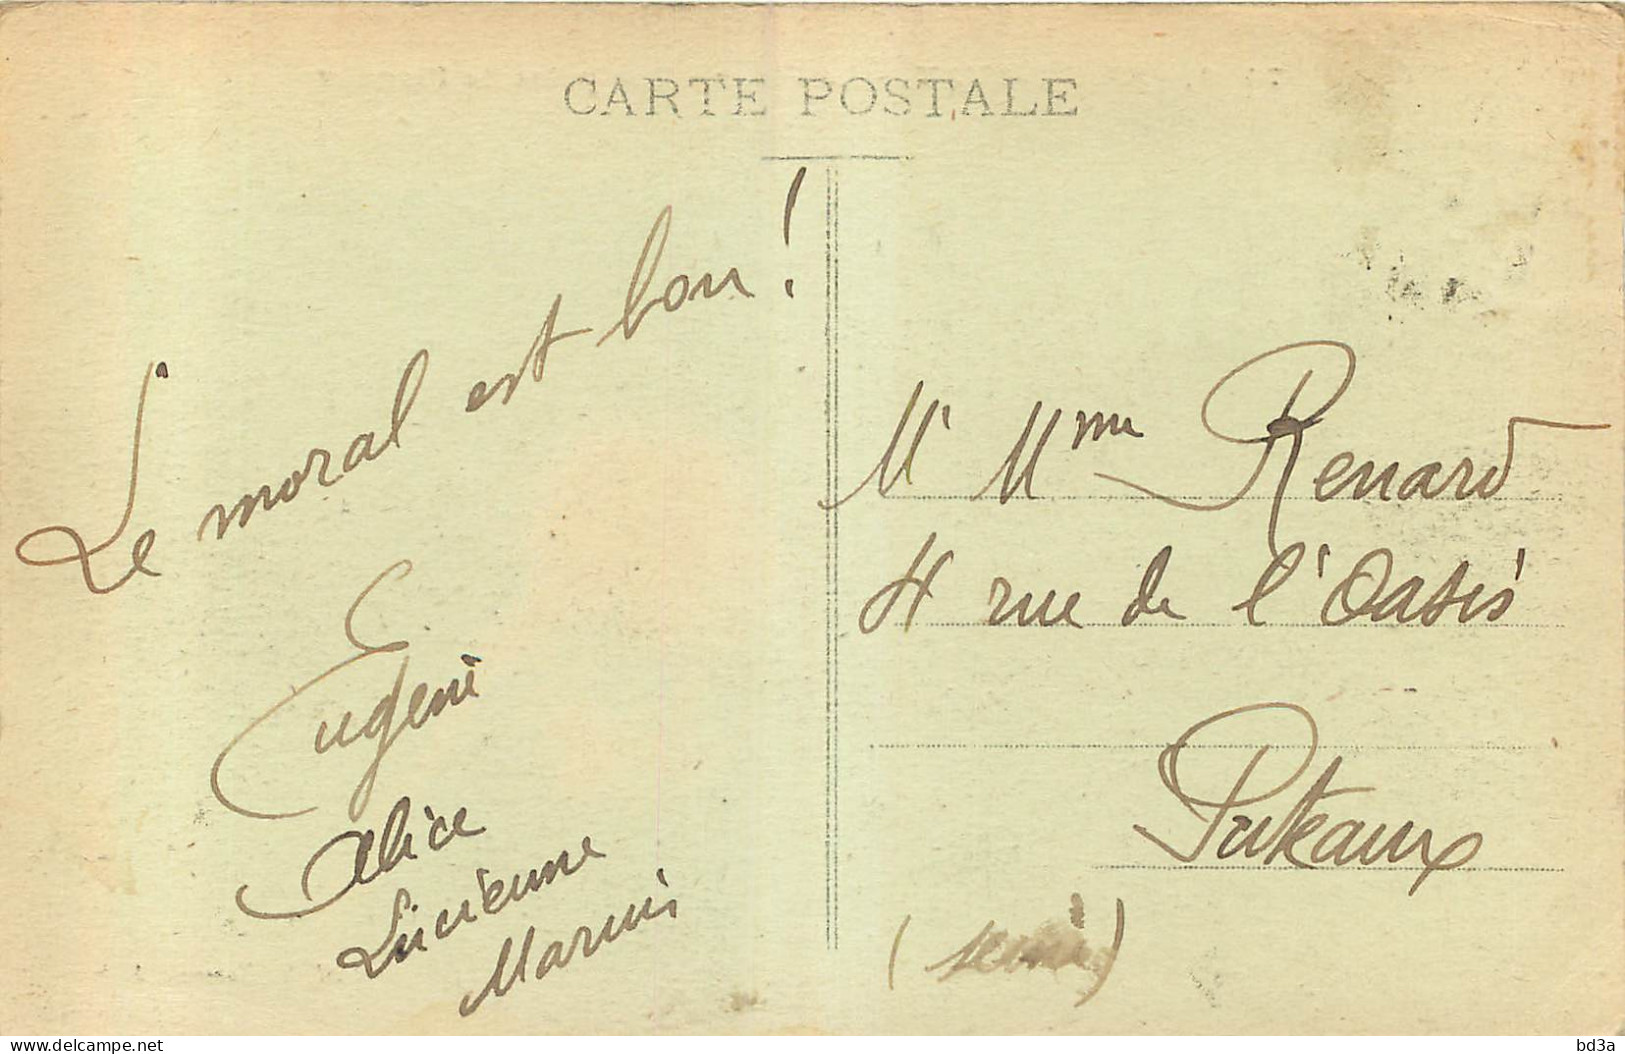 CARTE POSTALE
Le moral est bon !
Eugène
Alice
Lucienne
Marius
Mr Mme Renard
4 rue de l'Oasis
Puteaux
(Seine)
www.delcampe.net
bd3a